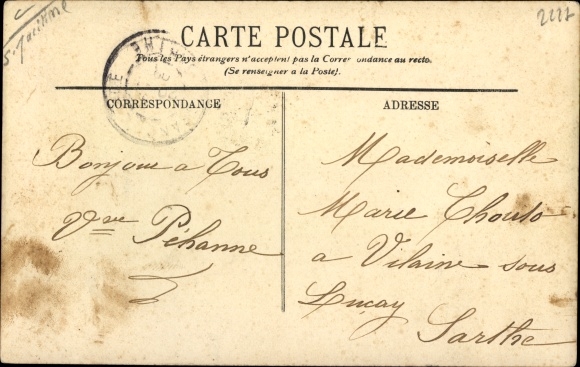 2227
CARTE POSTALE
Tous les Pays étrangers n'acceptent pas la Correspondance au recto.
(Se renseigner à la Poste).
CORRESPONDANCE
ADRESSE
Bonjour a Tous
Vve Péhanne
Mademoiselle
Marie
a Vilaine sous
Luçay
Sarthe